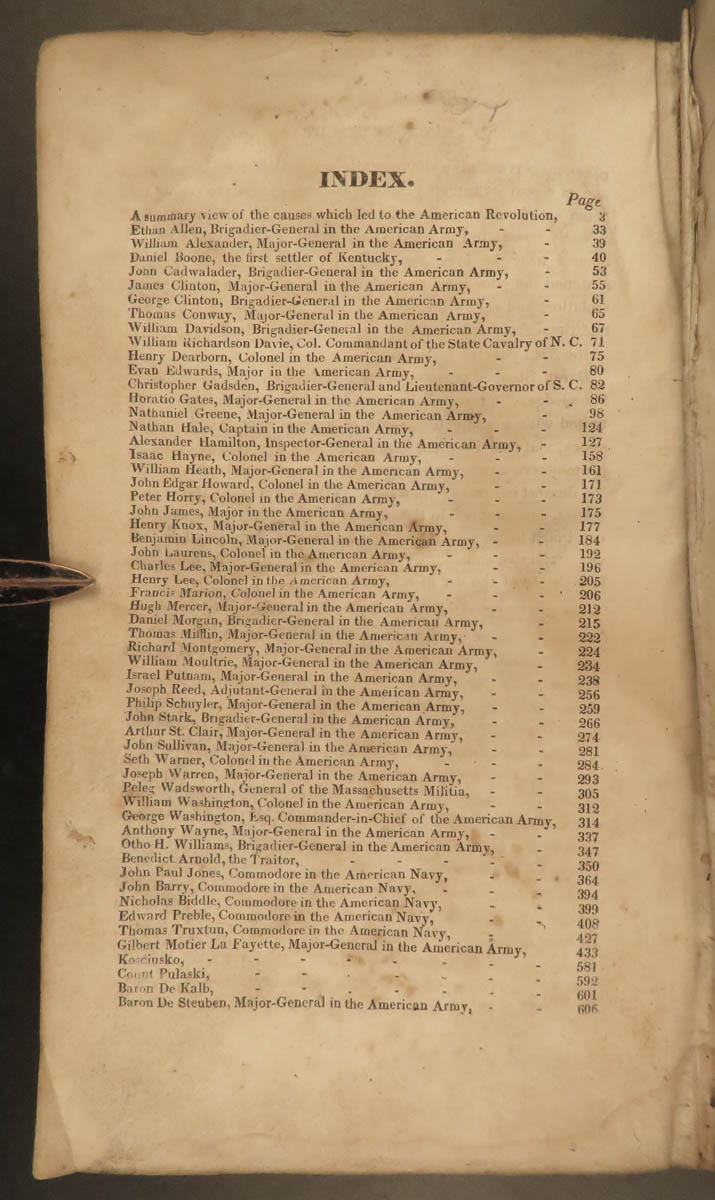 INDEX.
Page
A summary view of the causes which led to the American Revolution, 3
Ethan Allen, Brigadier-General in the American Army, - - 33
William Alexander, Major-General in the American Army, - 39
Daniel Boone, the first settler of Kentucky, - - - 40
John Cadwalader, Brigadier-General in the American Army, - 53
James Clinton, Major-General in the American Army, - - 55
George Clinton, Brigadier-General in the American Army, - 61
Thomas Conway, Major-General in the American Army, - 65
William Davidson, Brigadier-General in the American Army, - 67
William Richardson Davie, Col. Commandant of the State Cavalry of N. C. 71
Henry Dearborn, Colonel in the American Army, - - 75
Evan Edwards, Major in the American Army, - - - 80
Christopher Gadsden, Brigadier-General and Lieutenant-Governor of S. C. 82
Horatio Gates, Major-General in the American Army, - - 86
Nathaniel Greene, Major-General in the American Army, - 98
Nathan Hale, Captain in the American Army, - - - 124
Alexander Hamilton, Inspector-General in the American Army, - 127
Isaac Hayne, Colonel in the American Army, - - - 158
William Heath, Major-General in the American Army, - - 161
John Edgar Howard, Colonel in the American Army, - - 171
Peter Horry, Colonel in the American Army, - - - 173
John James, Major in the American Army, - - - 175
Henry Knox, Major-General in the American Army, - - 177
Benjamin Lincoln, Major-General in the American Army, - - 184
John Laurens, Colonel in the American Army, - - - 192
Charles Lee, Major-General in the American Army, - - 196
Henry Lee, Colonel in the American Army, - - - 205
Francis Marion, Colonel in the American Army, - - - 206
Hugh Mercer, Major-General in the American Army, - - 212
Daniel Morgan, Brigadier-General in the American Army, - 215
Thomas Mifflin, Major-General in the American Army, - - 222
Richard Montgomery, Major-General in the American Army, - 224
William Moultrie, Major-General in the American Army, - 234
Israel Putnam, Major-General in the American Army, - - 238
Joseph Reed, Adjutant-General in the American Army, - - 256
Philip Schuyler, Major-General in the American Army, - - 259
John Stark, Brigadier-General in the American Army, - - 266
Arthur St. Clair, Major-General in the American Army, - - 274
John Sullivan, Major-General in the American Army, - - 281
Seth Warner, Colonel in the American Army, - - - 284
Joseph Warren, Major-General in the American Army, - - 293
Peleg Wadsworth, General of the Massachusetts Militia, - - 305
William Washington, Colonel in the American Army, - - 312
George Washington, Esq. Commander-in-Chief of the American Army, 314
Anthony Wayne, Major-General in the American Army, - - 337
Otho H. Williams, Brigadier-General in the American Army, - 347
Benedict Arnold, the Traitor, - - - - - 350
John Paul Jones, Commodore in the American Navy, - - 364
John Barry, Commodore in the American Navy, - - - 394
Nicholas Biddle, Commodore in the American Navy, - - 399
Edward Preble, Commodore in the American Navy, - - 408
Thomas Truxtun, Commodore in the American Navy, - - 427
Gilbert Motier La Fayette, Major-General in the American Army, 433
Kosciusko, - - - - - - - - 581
Count Pulaski, - - - - - - - 592
Baron De Kalb, - - - - - - - 601
Baron De Steuben, Major-General in the American Army, - - 606